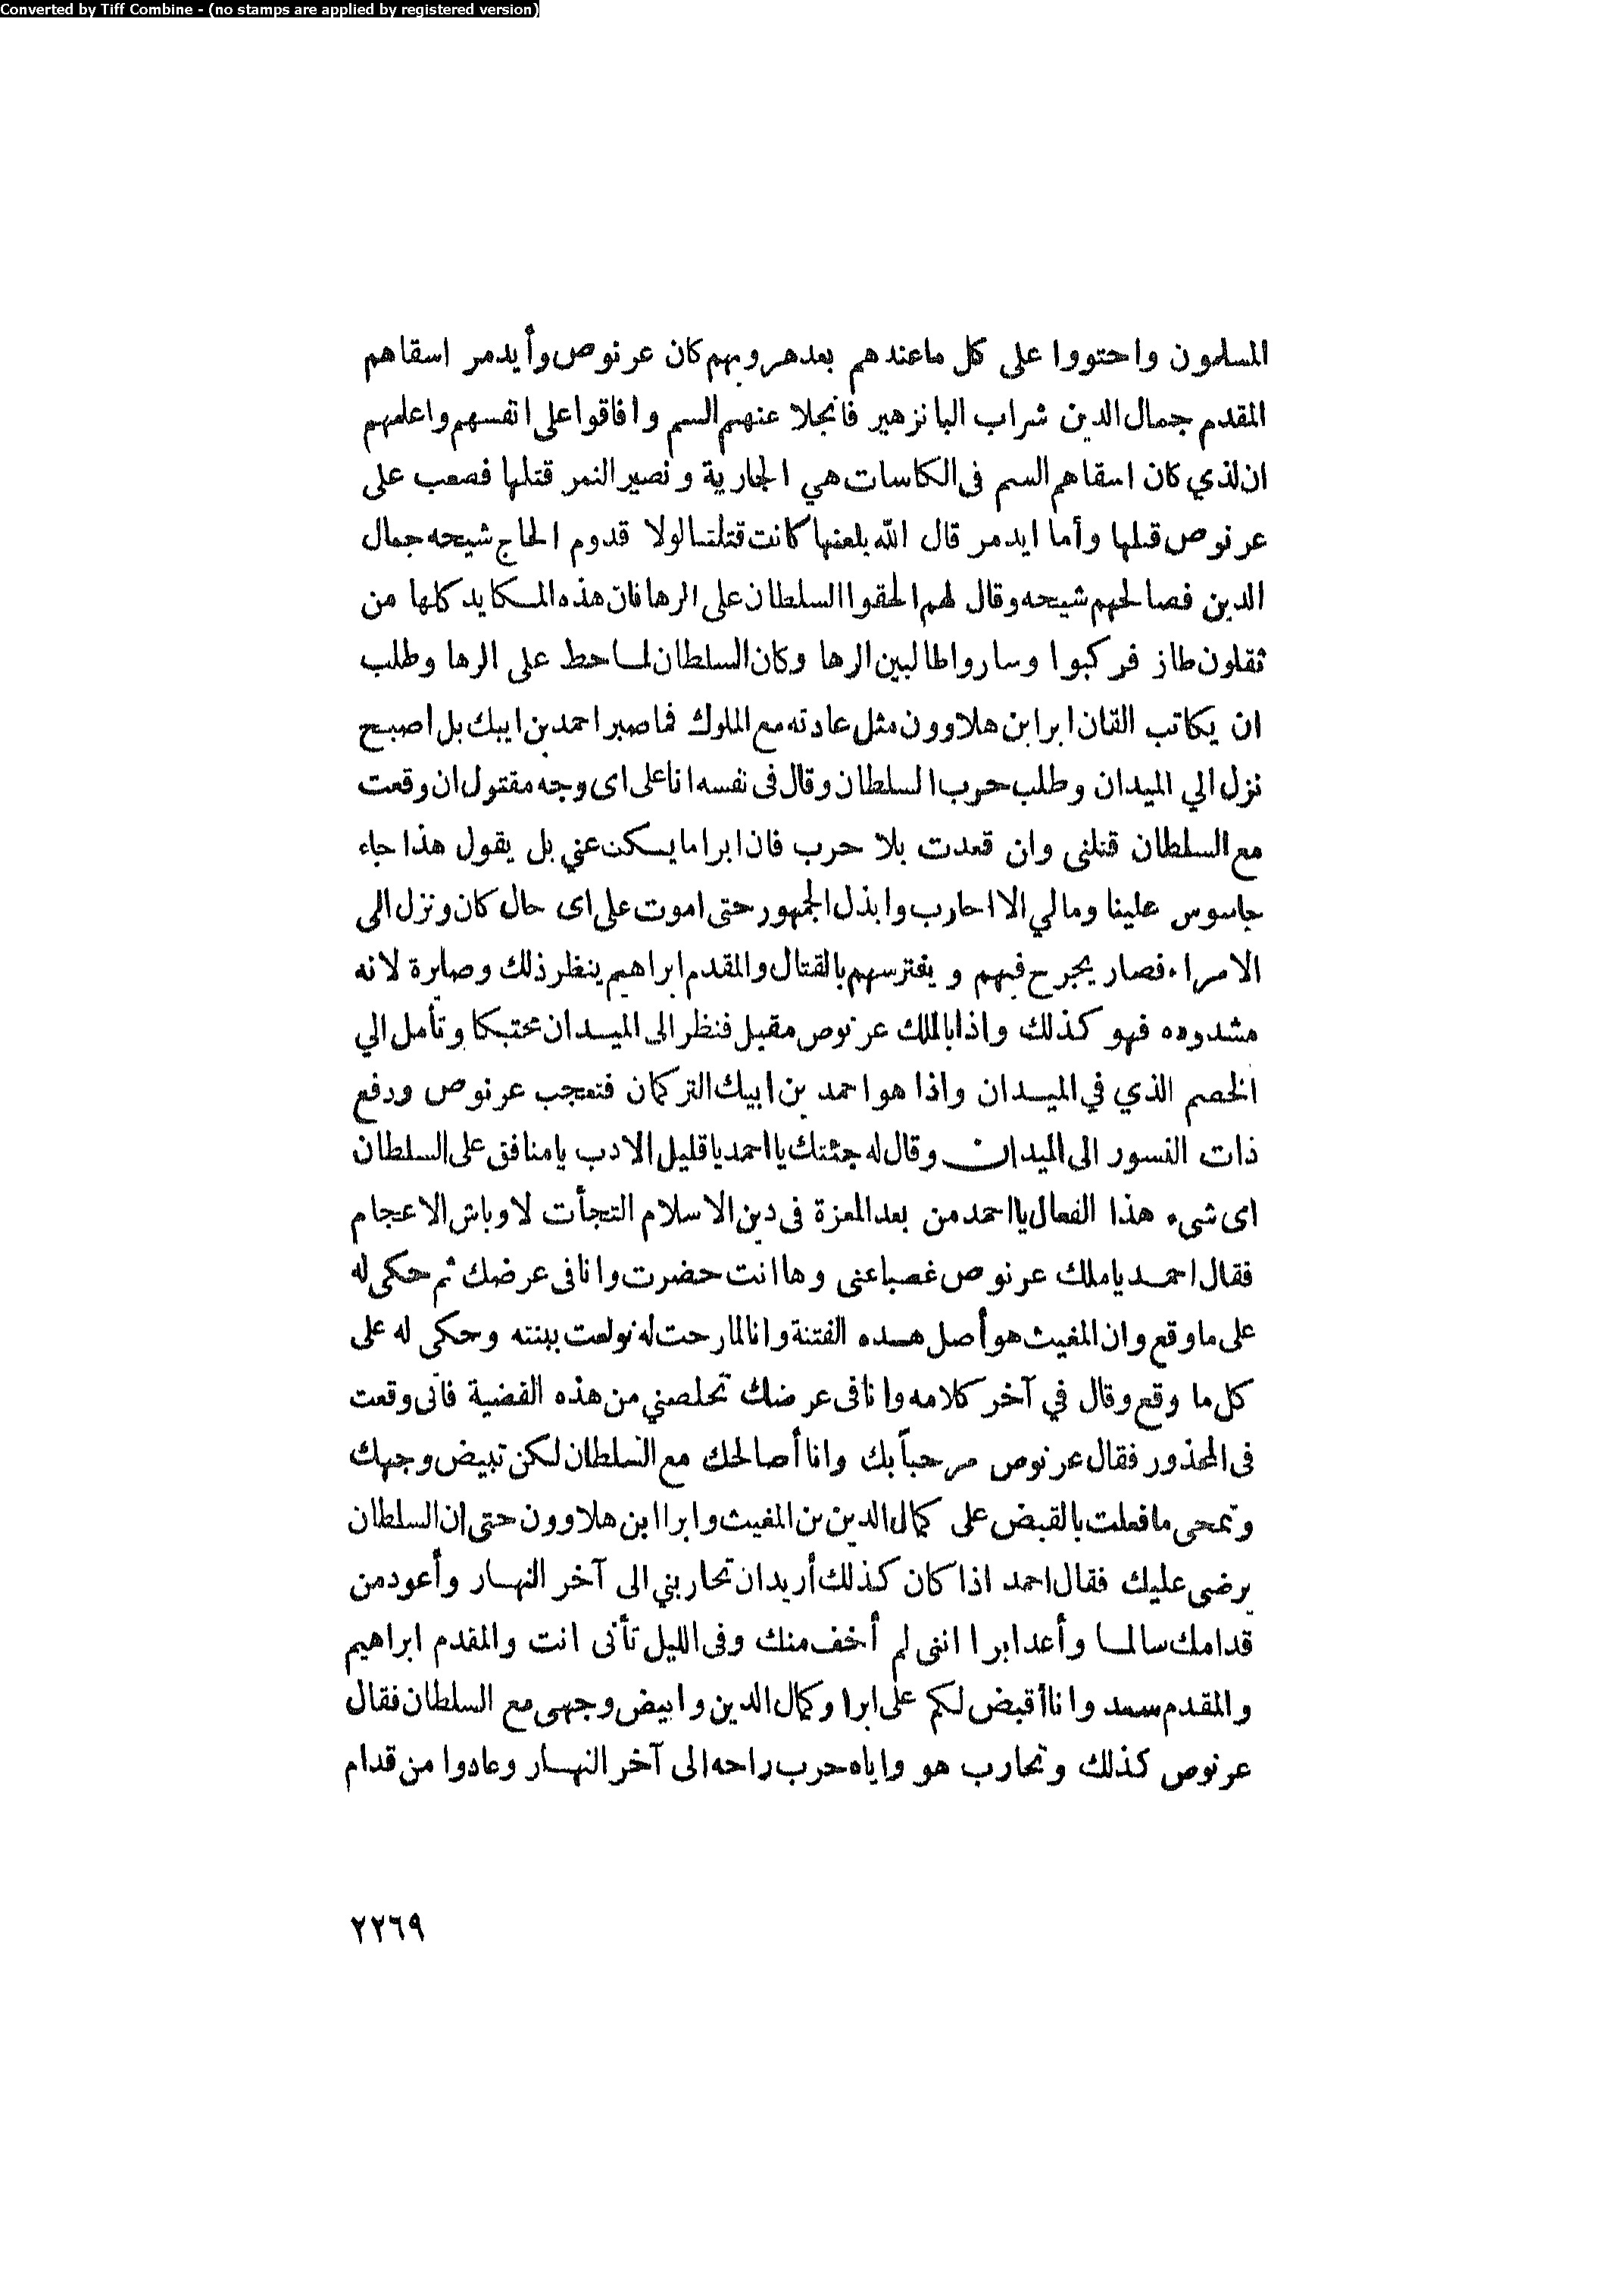 Converted by Tiff Combine - (no stamps are applied by registered version)
المسلمون واحتووا على كل ماعندهم بعدهروبهم كان عرنوص وأيدمر اسقاهم
المقدم جمال الدين شراب البانزهير فانجلا عنهم السم وافاقوا على اتفسهم واعلمهم
ان لذي كان اسقاهم السم فى الكاسات هي الجارية ونصير النمر قتلها فصعب على
عرنوص قتلها وأما ايدمر قال الله يلعنها كانت قتلتنا لولا قدوم الحاج شيحه جمال
الدين فصالحهم شيحه وقال لهم الحقوا السلطان على الرها فان هذه المكايد كلها من
ثقلون طاز فركبوا وساروا طالبين الرها وكان السلطان لما حط على الرها وطلب
ان يكاتب القان ابرا ابن هلاوون مثل عادته مع الملوك فما صبر احمد بن ايبك بل اصبح
نزل الي الميدان وطلب حرب السلطان وقال فى نفسه انا على اى وجه مقتول ان وقعت
مع السلطان قتلنى وان قعدت بلا حرب فان ابرا ما يسكت عني بل يقول هذا جاء
جاسوس علينا ومالي الا احارب وابذل الجمهور حتى اموت على اى حال كان ونزل الى
الامراء فصار يجرح فيهم ويفترسهم بالقتال والمقدم ابراهيم ينظر ذلك وصابرة لانه
مشدوده فهو كذلك واذا بالملك عرنوص مقبل فنظر الى الميدان محتبكا وتأمل الي
الخصم الذي في الميدان واذا هو احمد بن ابيك التركمان فتعجب عرنوص ودفع
ذات النسور الى الميدان وقال له جئتك يا احمد يا قليل الادب يا منافق على السلطان
اى شىء هذا الفعال يا احمد من بعد المعزة فى دين الاسلام التجأت لاوباش الاعجام
فقال احمد ياملك عرنوص غصبا عنى وها انت حضرت وانا فى عرضك ثم حكى له
على ما وقع وان المغيث هو أصل هده الفتنة وانا لما رحت له تولعت ببنته وحكى له على
كل ما وقع وقال في آخر كلامه وانا فى عرضك تخلصني من هذه القضية فانى وقعت
فى المحذور فقال عرنوص مرحباً بك وانا أصالحك مع السلطان لكن تبيض وجهك
وتمحى ما فعلت بالقبض على كمال الدين بن المغيث وابرا ابن هلاوون حتى ان السلطان
يرضى عليك فقال احمد اذا كان كذلك أريد ان تحاربني الى آخر النهار وأعود من
قدامك سالما وأعد ابرا اننى لم أخف منك وفى الليل تأتى انت والمقدم ابراهيم
والمقدم سعد وانا أقبض لكم على ابرا وكمال الدين وابيض وجهى مع السلطان فقال
عرنوص كذلك وتحارب هو واياه حرب راحه الى آخر النهار وعادوا من قدام
٢٢٦٩